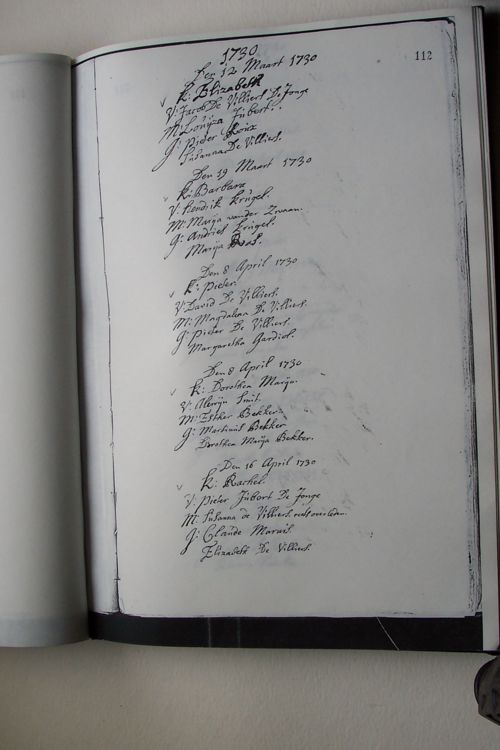 112
1730
Den 12 Maart 1730
K: Elizabeth
V: Jacob De Villiers De Jonge
M: Louiza Jubert.
G: Pieter Roux
Susanna De Villiers.
Den 19 Maart 1730
K: Barbara
V: Hendrik Krugel.
M: Marija vander Zwaan.
G: Andries Krugel.
Marija
Den 8 April 1730
K: Pieter
V: David De Villiers.
M: Magdalena De Villiers.
G: Pieter De Villiers.
Margaretha Gardiol.
Den 8 April 1730
K: Dorothea Marija.
V: Alewijn Smit.
M: Esther Bekker
G: Martinus Bekker
Dorothea Marija Bekker.
Den 16 April 1730
K: Rachel.
V: Pieter Jubert De Jonge
M: Susanna de Villiers
G: Claude Marais.
Elizabeth De Villiers